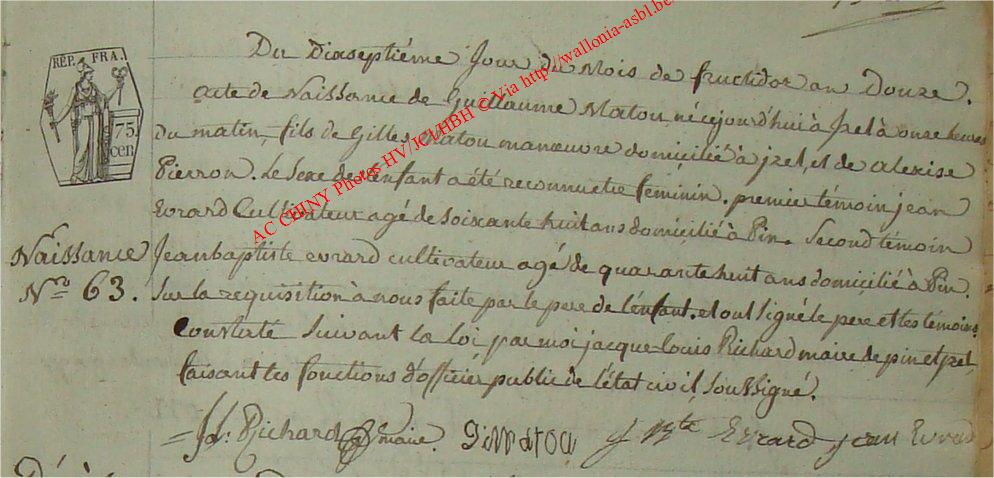 Du Dixseptiéme Jour du Mois de fructidor an Douze.
acte de Naissance de Guillaume Maton, né cejourd'hui à Izel à onze heures
du matin, fils de Gilles Maton manœuvre domicilié à jzel, et de alexise
Pierron. Le Sexe de l'enfant a été reconnu etre feminin. premier témoin jean
Evrard Cultivateur agé de soixante huit ans domicilié à Pin. Second témoin
Jean baptiste evrard cultivateur agé de quarante huit ans domicilié à Pin.
Sur la requisition à nous faite par le pere de l'enfant. et ont signé le pere et les témoins
Constaté Suivant la Loi par moi jacque-louis Richard maire de pin et jzel
faisant les fonctions d'officier public de l'état civil, Soussigné.
Richard maire. G maton Bte Evrard jean Evrard
Naissance
Nro 63.
RÉP. FRA.
75
cen
AC CHINY Photos HV KVHBH © Via http://wallonia-asbl.be